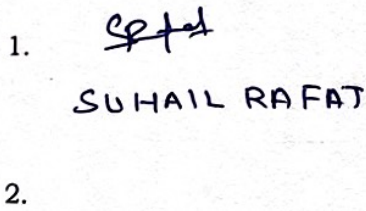 1.
SUHAIL RAFAT
2.